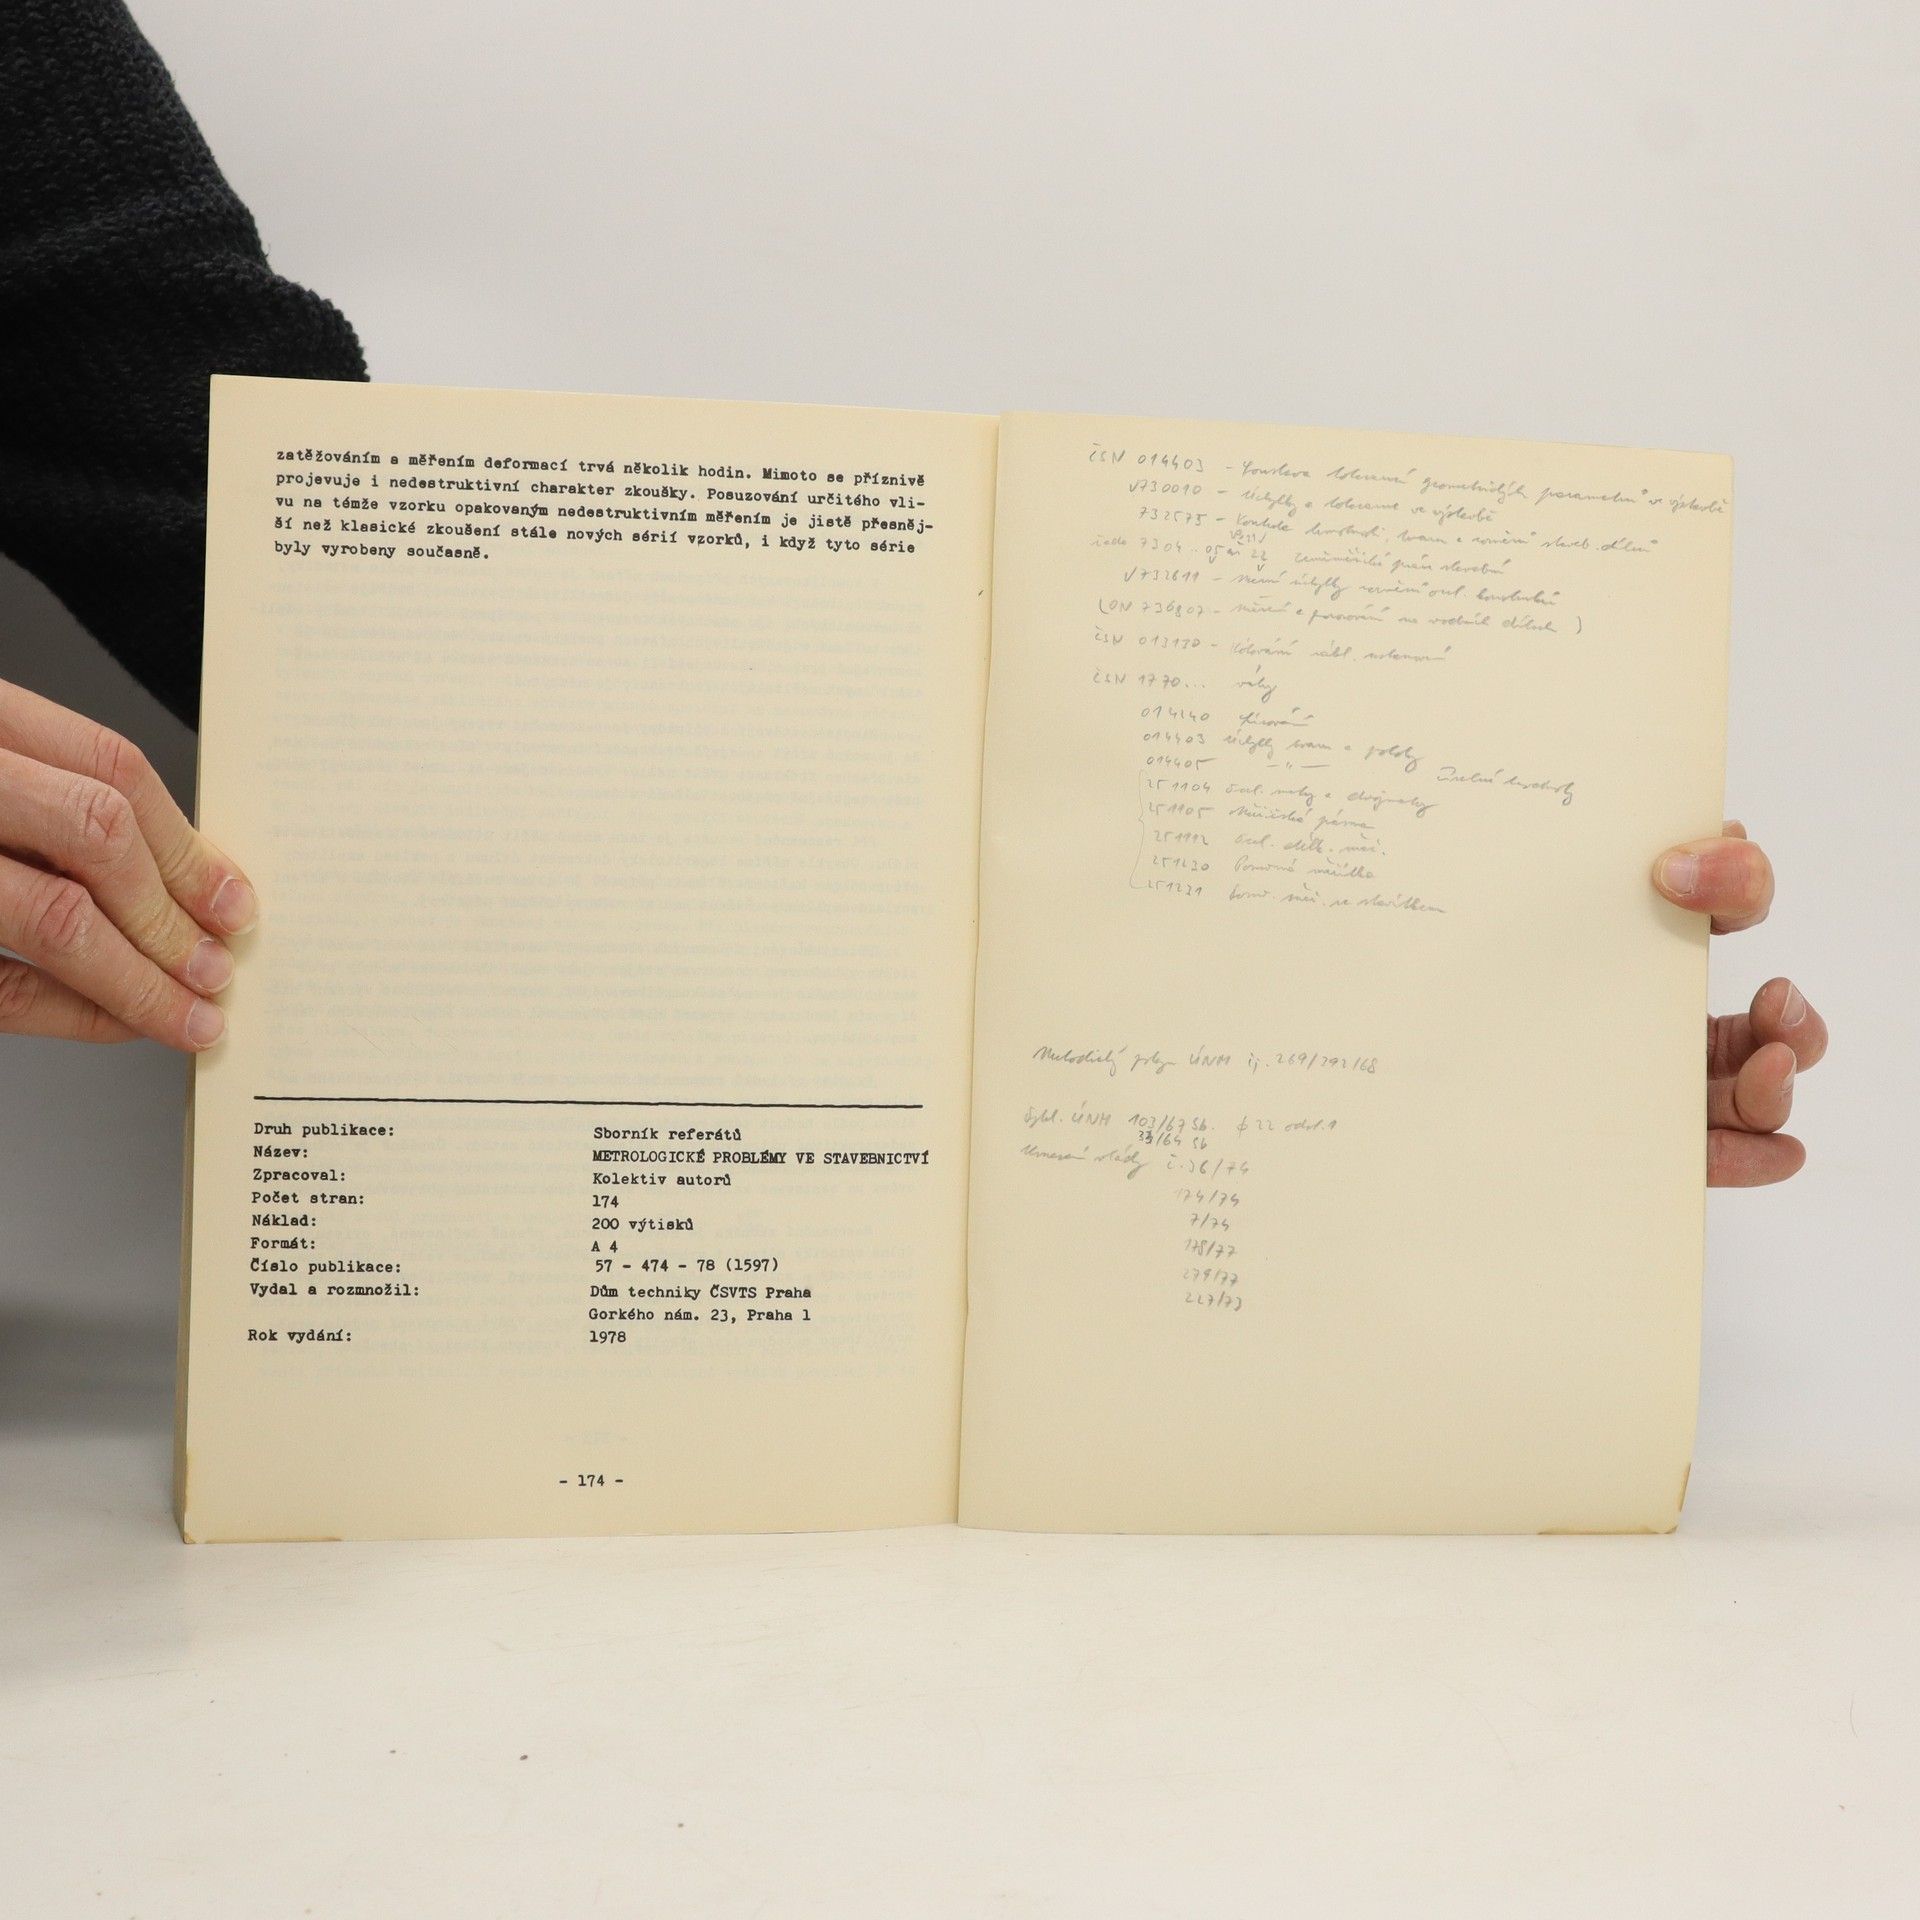 zatěžováním a měřením deformací trvá několik hodin. Mimoto se příznivě
projevuje i nedestruktivní charakter zkoušky. Posuzování určitého vli-
vu na témže vzorku opakovaným nedestruktivním měřením je jistě přesněj-
ší než klasické zkoušení stále nových sérií vzorků, i když tyto série
byly vyrobeny současně.
Druh publikace: Sborník referátů
Název: METROLOGICKÉ PROBLÉMY VE STAVEBNICTVÍ
Zpracoval: Kolektiv autorů
Počet stran: 174
Náklad: 200 výtisků
Formát: A 4
Číslo publikace: 57 - 474 - 78 (1597)
Vydal a rozmnožil: Dům techniky ČSVTS Praha
Gorkého nám. 23, Praha 1
Rok vydání: 1978
- 174 -
ČSN 014403 - Soustava tolerancí geometrických parametrů ve výstavbě
√730010 - Úchylky a tolerance ve výstavbě
732575 - Kontrola tvaru a rozměrů staveb. dílců
řada 7304..
√732611 - úchylky rozměrů ocel. konstrukcí
(ON 736807 - Měření a pozorování na vodních dílech)
ČSN 013130 - Kótování zákl. ustanovení
ČSN 1770... váhy
014240
014403 Úchylky tvaru a polohy
014405 - " -
251104 Ocel. metry a dvojmetry
251105 Měřičská pásma
251112 Ocel. měř.
251230 Posuvná měřítka
251231 měř.
Metodický pokyn ÚNM čj. 269/392/68
ÚNM 103/67 Sb. § 22 odst. 1
/64 Sb
Usnesení vlády č. 36/74
174/74
7/74
178/77
279/77
227/73